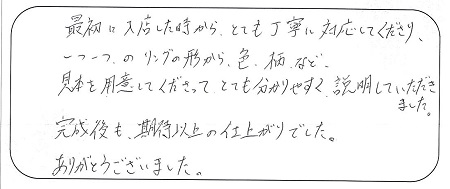 最初に入店した時から、とても丁寧に対応してくださり、
一つ一つのリングの形から、色、柄、など、
見本を用意してくださって、とても分かりやすく、説明していただき
ました。
完成後も、期待以上の仕上がりでした。
ありがとうございました。